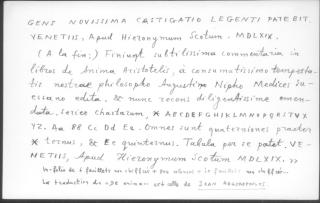 GENS NOVISSIMA CASTIGATIO LEGENTI PATEBIT.
VENETIIS, Apud Hieronymum Scotum. MDLXIX.
(A la fin:) Finiunt subtilissima commentaria in
libros de Anima Aristotelis, à consumatissimo tempesta-
tis nostrae philosopho Augustino Nipho Medices su-
essano edita, & nunc recens diligentissime emen-
data, serie chartarum, * ABCDEFGHIKLMNOPQRSTVX
YZ. Aa BB Cc Dd Ee. Omnes sunt quaterniones praeter
* ternus, & Ee quinternus. Tabula per se patet. VE-
NETIIS, Apud Hieronymum Scotum MDLXIX. >>
In-folio de 6 feuillets non chiffrés + chiffrés.
La traduction du «De anima» est celle de JEAN ARGYROPOULOS